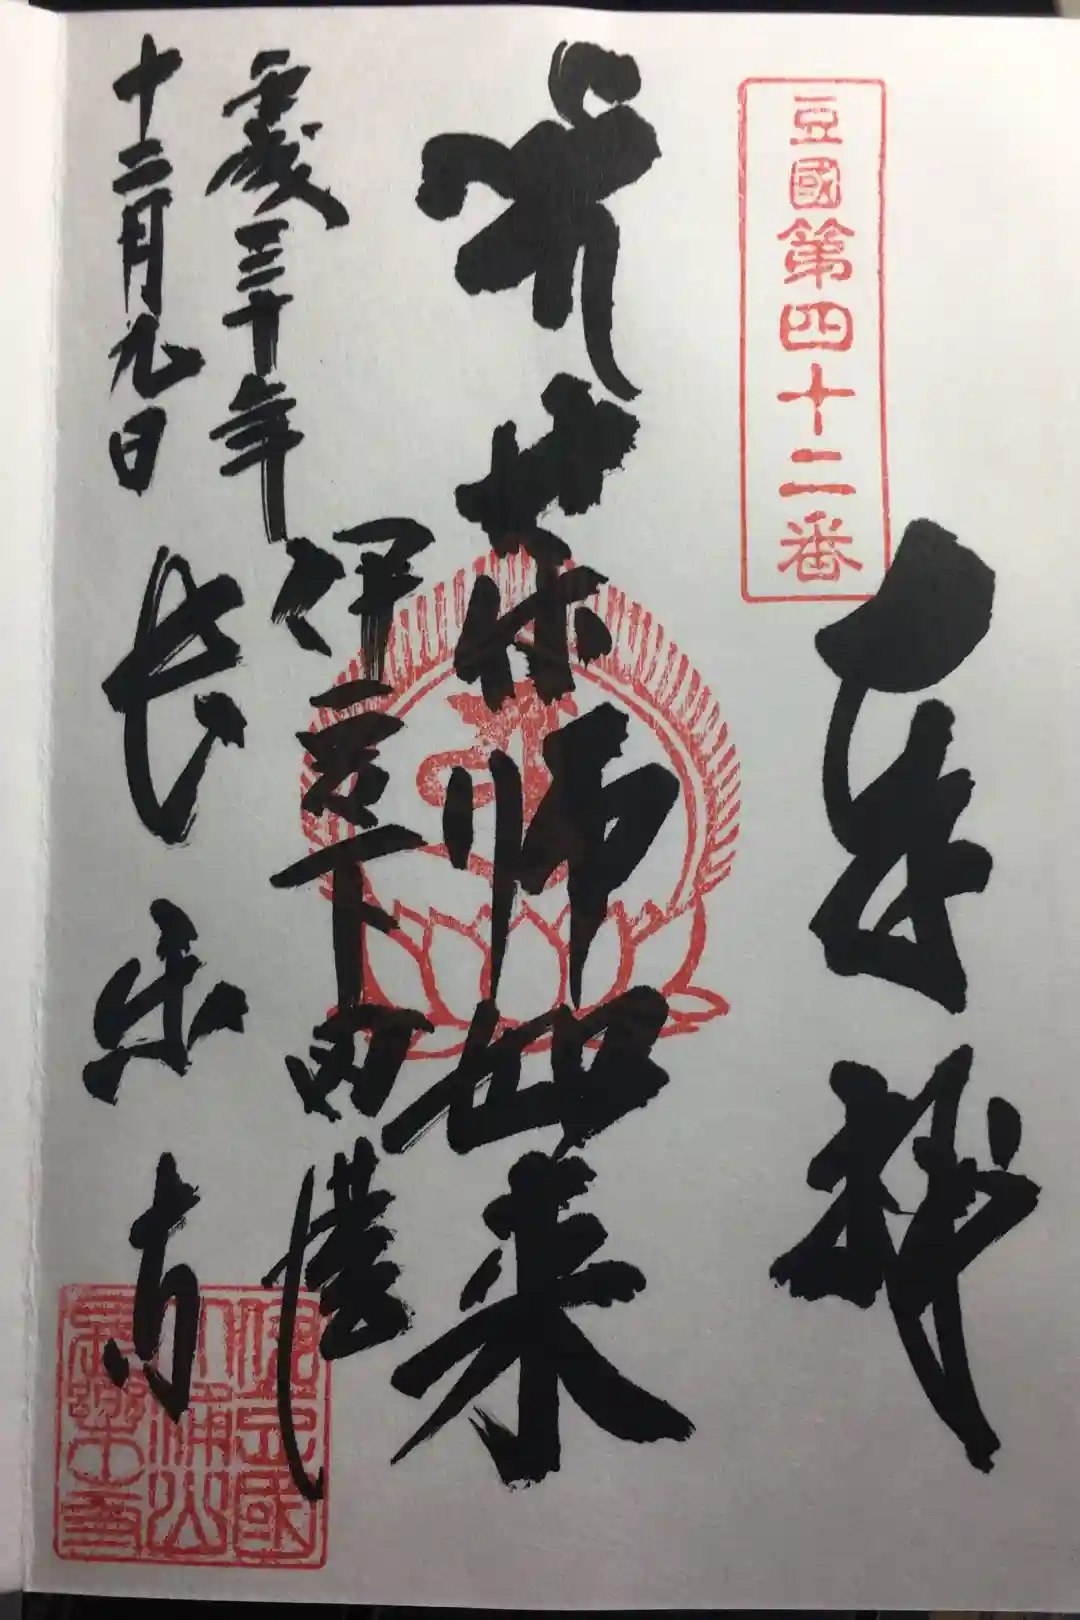 豆國第四十二番
奉拝
薬師如来
平成三十年
十二月九日
伊豆下田港
長楽寺
伊豆國
大浦山
長樂寺